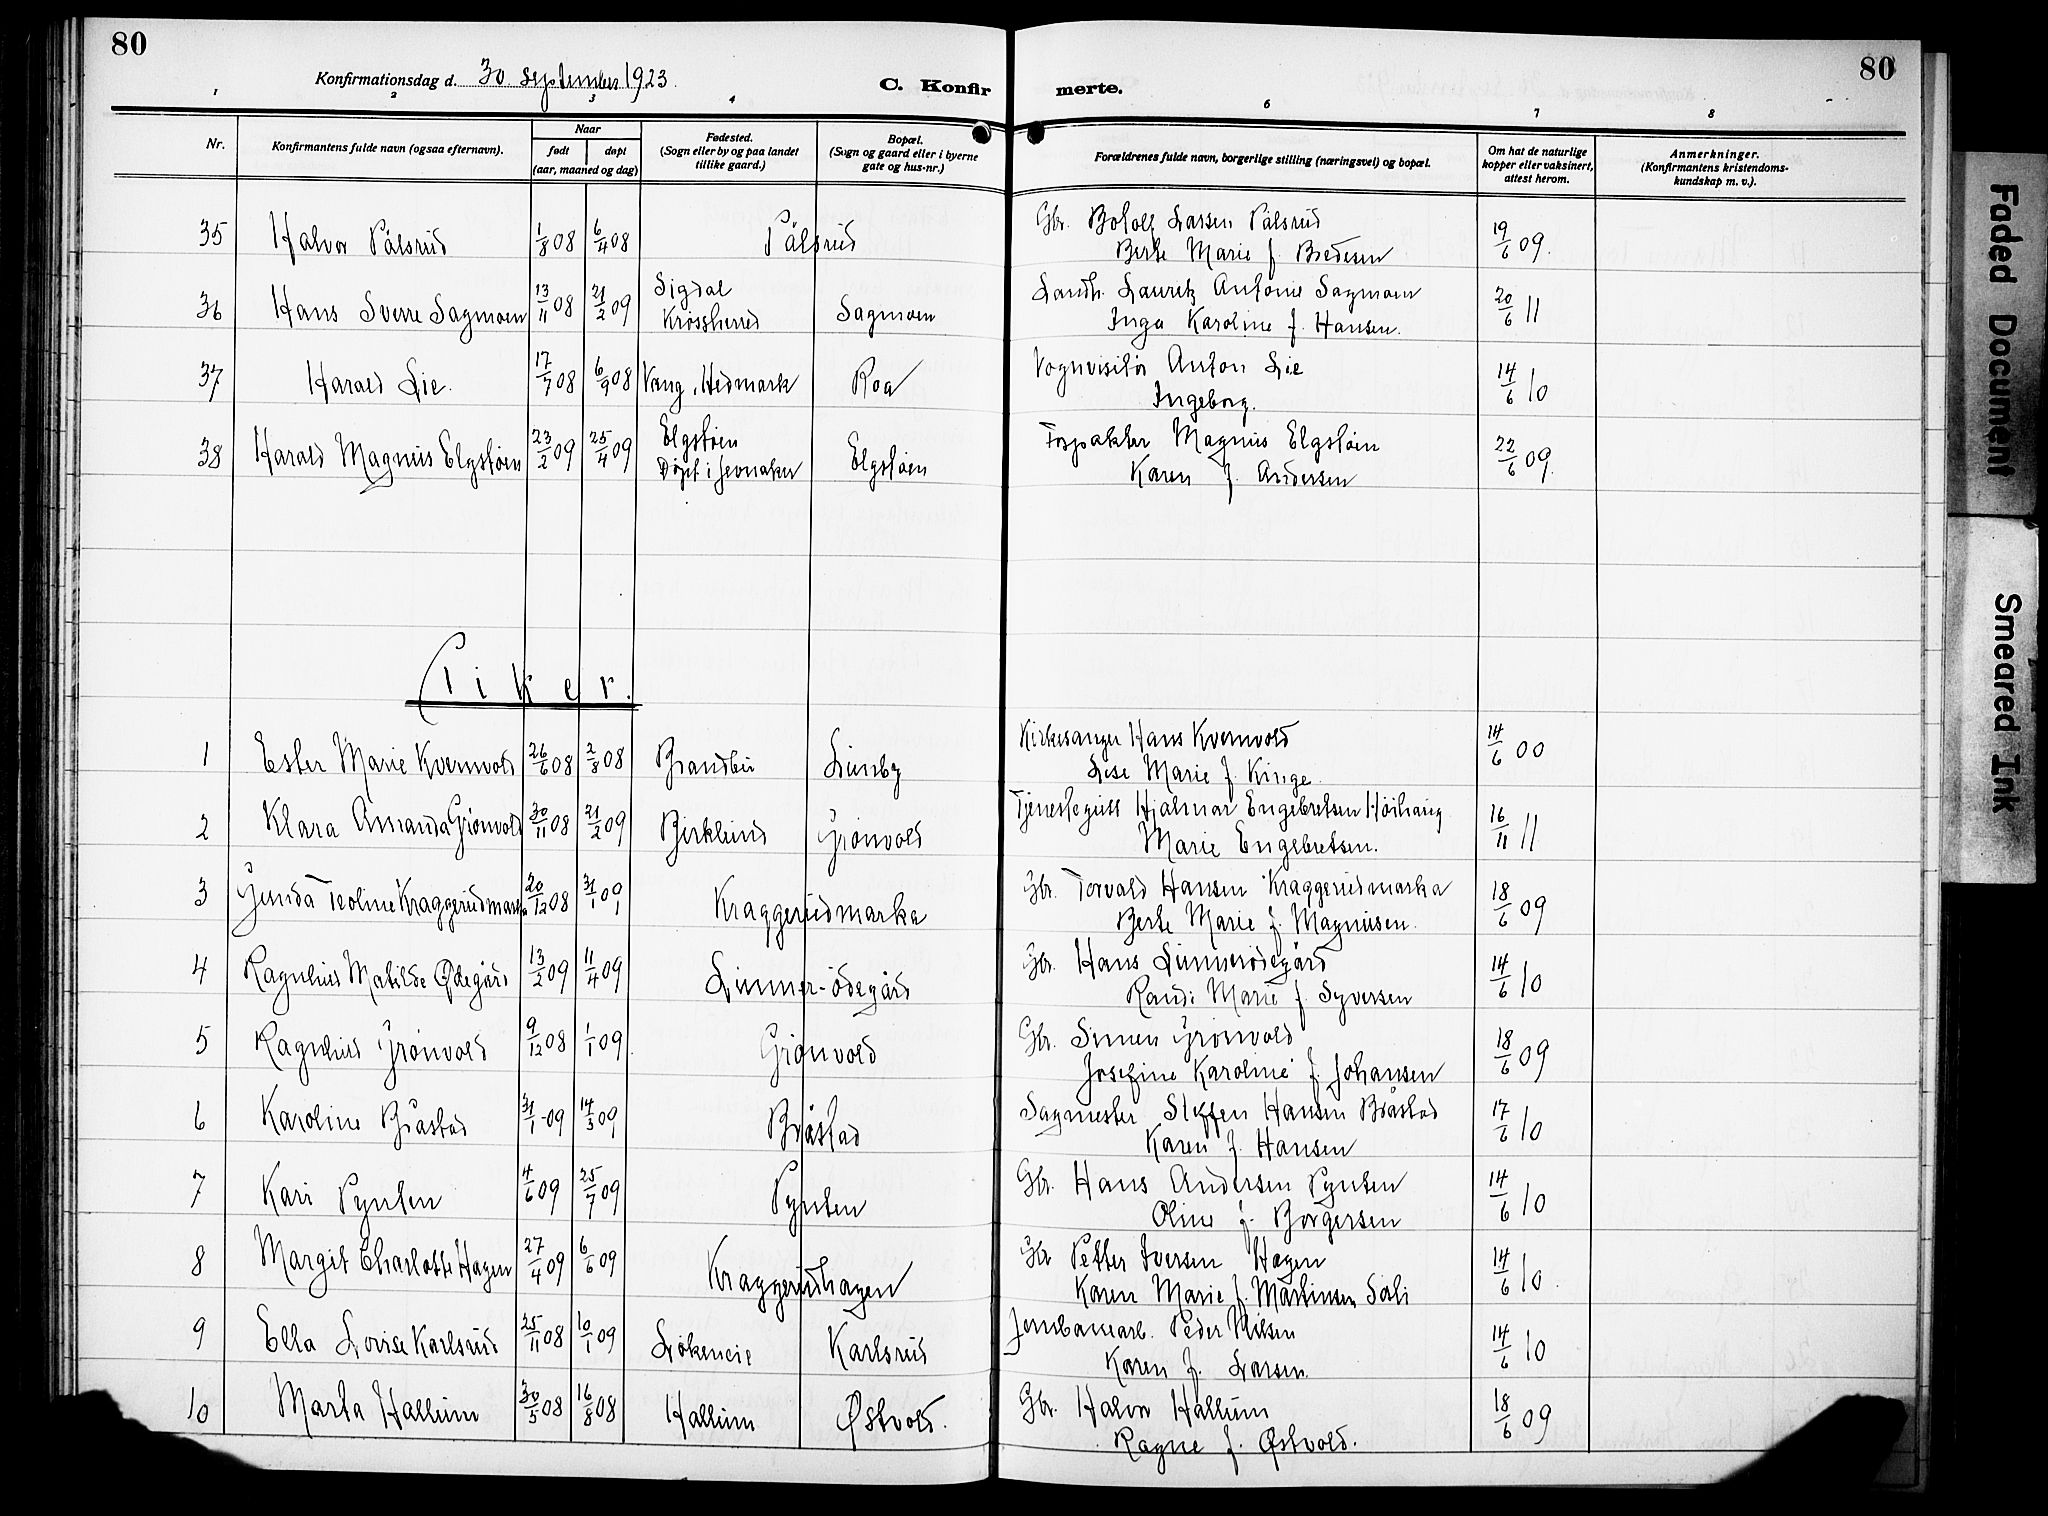 80
Konfirmationsdag d. 30 september 1923.
C. Konfirmerte.
80
1 2 3 4 6 7 8
Nr. Konfirmantens fulde navn (ogsaa efternavn). Naar født døpt (aar, maaned og dag) Fødested. (Sogn eller by og paa landet tillike gaard.) Bopæl. (Sogn og gaard eller i byerne gate og hus-nr.) Forældrenes fulde navn, borgerlige stilling (næringsvei) og bopæl. Om hat de naturlige kopper eller vaksinert, attest herom. Anmerkninger. (Konfirmantens kristendomskundskap m. v.).
35 Halvor Pålsrud 1/8 08 6/4 08 Pålsrud Gbr. Botolf Larsen Pålsrud 19/6 09.
Berte Marie f. Bredesen
36 Hans Sverre Sagmoen 13/11 08 21/2 09 Sigdal Krossherred Sagmoen Landh. Lauretz Antonie Sagmoen 20/6 11
Inga Karoline f. Hansen.
37 Harald Lie. 17/7 08 6/9 08 Vang, Hedmark Roa Vognvisitør Anton Lie 14/6 10
Ingeborg.
38 Harald Magnus Elgstøen 23/2 09 25/4 09 Elgstøen Døpt i Jevnaker Elgstøen Forpakter Magnus Elgstøen 22/6 09.
Karen f. Andersen
Piker.
1 Ester Marie Kvernvold 26/6 08 2/8 08 Brandbu Lunby Kirkesanger Hans Kvernvold 14/6 00
Lise Marie f. Kinge.
2 Klara Amanda Grønvold 30/11 08 21/2 09 Birklund Grønvold Tjenestegutt Hjalmar Engebretsen Høihaug 16/11 11
Marie Engebretsen.
3 Gunda Teoline Kraggerudmarka 20/12 08 31/1 09 Kraggerudmarka Gbr. Torvald Hansen Kraggerudmarka 18/6 09
Berte Marie f. Magnusen.
4 Ragnhild Matilde Ødegård 13/2 09 11/4 09 Lunner-ødegård Gbr. Hans Lunnerødegård 14/6 10
Randi Marie f. Syversen
5 Ragnhild Grønvold 9/12 08 1/1 09. Grønvold Gbr. Simen Grønvold 18/6 09
Josefine Karoline f. Johansen
6 Karoline Bråstad 31/1 09 14/3 09 Bråstad Sagmester Steffen Hansen Bråstad 17/6 10
Karen f. Hansen
7 Kari Pynten 4/6 09 25/7 09 Pynten Gbr. Hans Andersen Pynten 14/6 10
Oline f. Borgersen
8 Margit Charlotte Hagen 27/4 09 6/6 09 Kraggerudhagen Gbr Petter Iversen Hagen 14/6 10.
Karen Marie f. Martinsen Sørli
9 Ella Lovise Karlsrud 25/11 08 10/1 09 Løkeneie Karlsrud Jernbanearb. Peder Nilsen 14/6 10
Karen f. Larsen.
10 Marta Hallum 30/5 08 16/8 08 Hallum Østvold. Gbr. Halvor Hallum 18/6 09
Ragne f. Østvold.
Faded Document
Smeared Ink